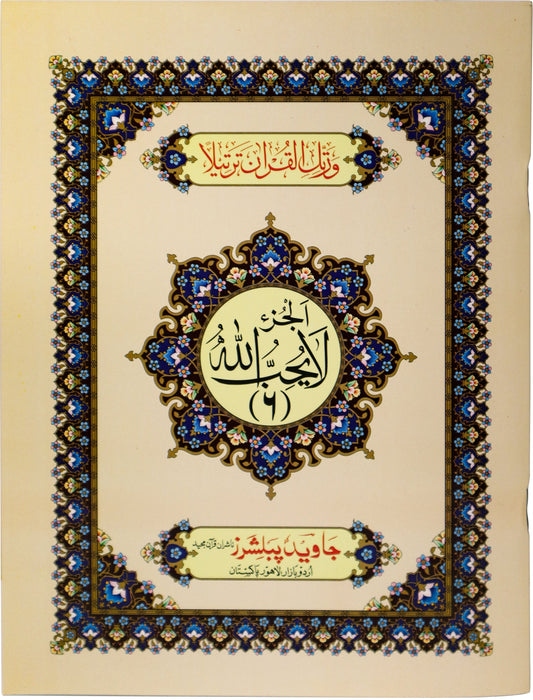 وَرَتِّلِ الْقُرْآنَ تَرْتِيلًا
اَلْجُزْءُ
لَا يُحِبُّ اللهُ
(٦)
جاوید پبلشرز ناشران قرآن مجید
اردو بازار لاهور پاکستان